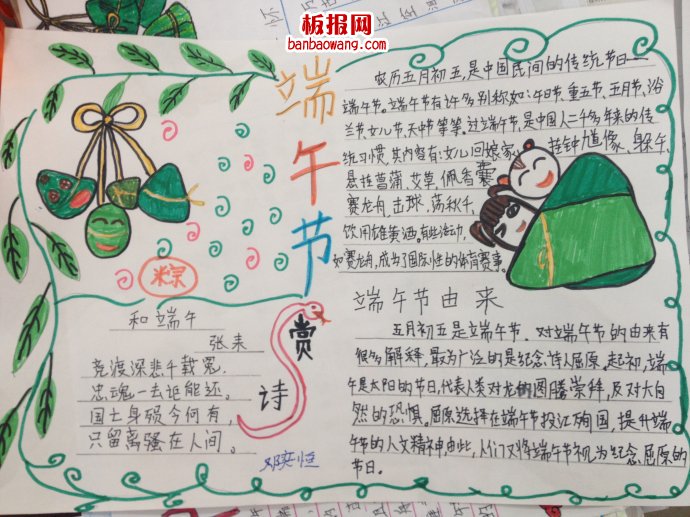 板报网
banbaowang.com
端午节
农历五月初五,是中国民间的传统节日——
端午节。端午节有许多别称如:午日节、重五节,五月节,浴
兰节,女儿节,天中节等等。过端午节,是中国人二千多年来的传
统习惯,其内容有:女儿回娘家,挂钟馗像、躲午、
悬挂菖蒲、艾草,佩香囊
赛龙舟,击球,荡秋千,
饮用雄黄酒。有些活动,
如赛龙舟,成为了国际性的体育赛事。
粽
和端午
张耒
竞渡深悲千载冤,
忠魂一去讵能还。
国士身殒今何有,
只留离骚在人间。
赏诗
邓奕恒
端午节由来
五月初五是端午节。对端午节的由来有
很多解释,最为广泛的是纪念诗人屈原。起初,端
午是太阳的节日,代表人类对龙的图腾崇拜,及对大自
然的恐惧。屈原选择在端午节投江殉国,提升端
午节的人文精神,由此,人们又将端午节视为纪念屈原的
节日。